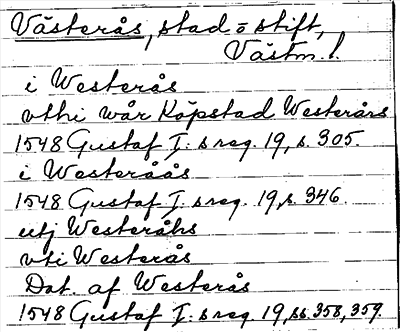 Västerås, stad o stift,
Västm. l.
i Westerås
vthi wår Köpstad Westerårs
1548 Gustaf I:s reg. 19, s. 305.
i Westeråås
1548 Gustaf I:s reg. 19, s. 346.
utj Westeråhs
vti Westerås
Dat. af Westerås
1548 Gustaf I:s reg. 19, ss. 358, 359.